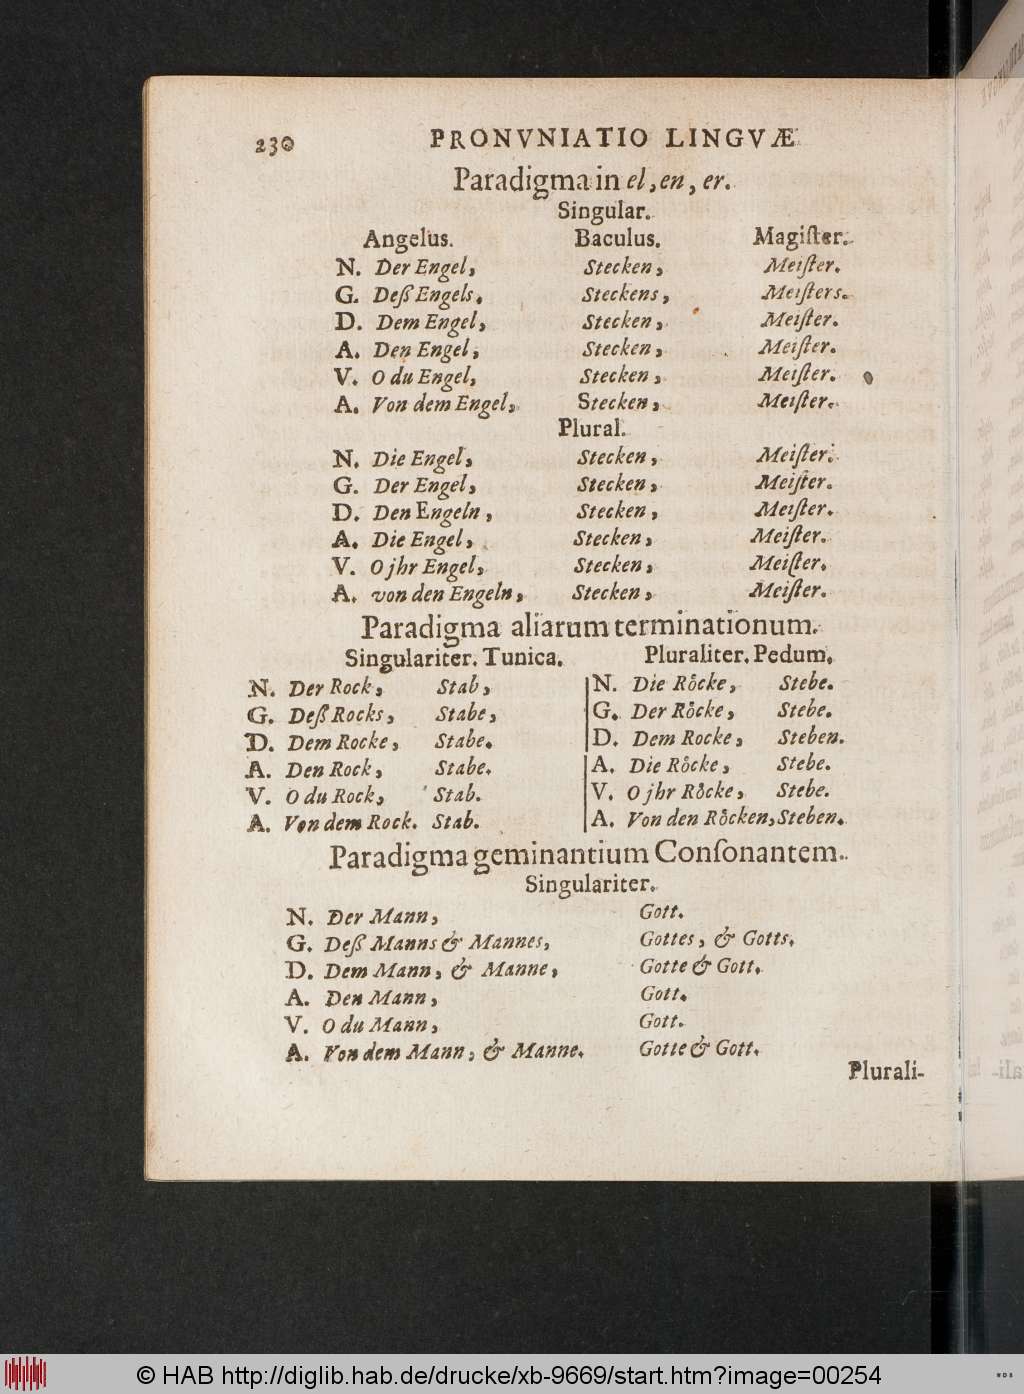 230 PRONVNIATIO LINGVÆ
Paradigma in el, en, er.
Singular.
Angelus. Baculus. Magiſter.
N. Der Engel, Stecken, Meiſter.
G. Deß Engels. Steckens, Meiſters.
D. Dem Engel, Stecken, Meiſter.
A. Den Engel, Stecken, Meiſter.
V. O du Engel, Stecken, Meiſter.
A. Von dem Engel, Stecken, Meiſter.
Plural.
N. Die Engel, Stecken, Meiſter.
G. Der Engel, Stecken, Meiſter.
D. Den Engeln, Stecken, Meiſter.
A. Die Engel, Stecken, Meiſter.
V. O jhr Engel, Stecken, Meiſter.
A. von den Engeln, Stecken, Meiſter.
Paradigma aliarum terminationum.
Singulariter. Tunica. Pluraliter. Pedum.
N. Der Rock, Stab, N. Die Roͤcke, Stebe.
G. Deß Rocks, Stabe, G. Der Roͤcke, Stebe.
D. Dem Rocke, Stabe. D. Dem Rocke, Steben.
A. Den Rock, Stabe. A. Die Roͤcke, Stebe.
V. O du Rock, Stab. V. O jhr Roͤcke, Stebe.
A. Von dem Rock. Stab. A. Von den Roͤcken, Steben.
Paradigma geminantium Conſonantem.
Singulariter.
N. Der Mann, Gott.
G. Deß Manns & Mannes, Gottes, & Gotts.
D. Dem Mann, & Manne, Gotte & Gott.
A. Den Mann, Gott.
V. O du Mann, Gott.
A. Von dem Mann, & Manne. Gotte & Gott.
Plurali-
© HAB http://diglib.hab.de/drucke/xb-9669/start.htm?image=00254